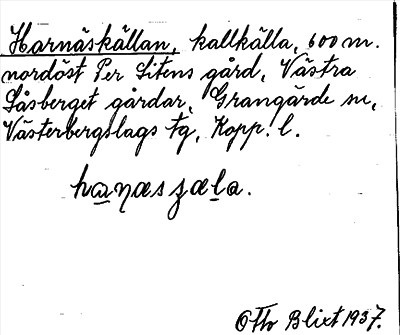 Harnäskällan, kallkälla, 600 m.
nordöst Per Litens gård, Västra
Låsberget gårdar, Grangärde sn,
Västerbergslags tg, Kopp. l.
Otto Blixt 1937.